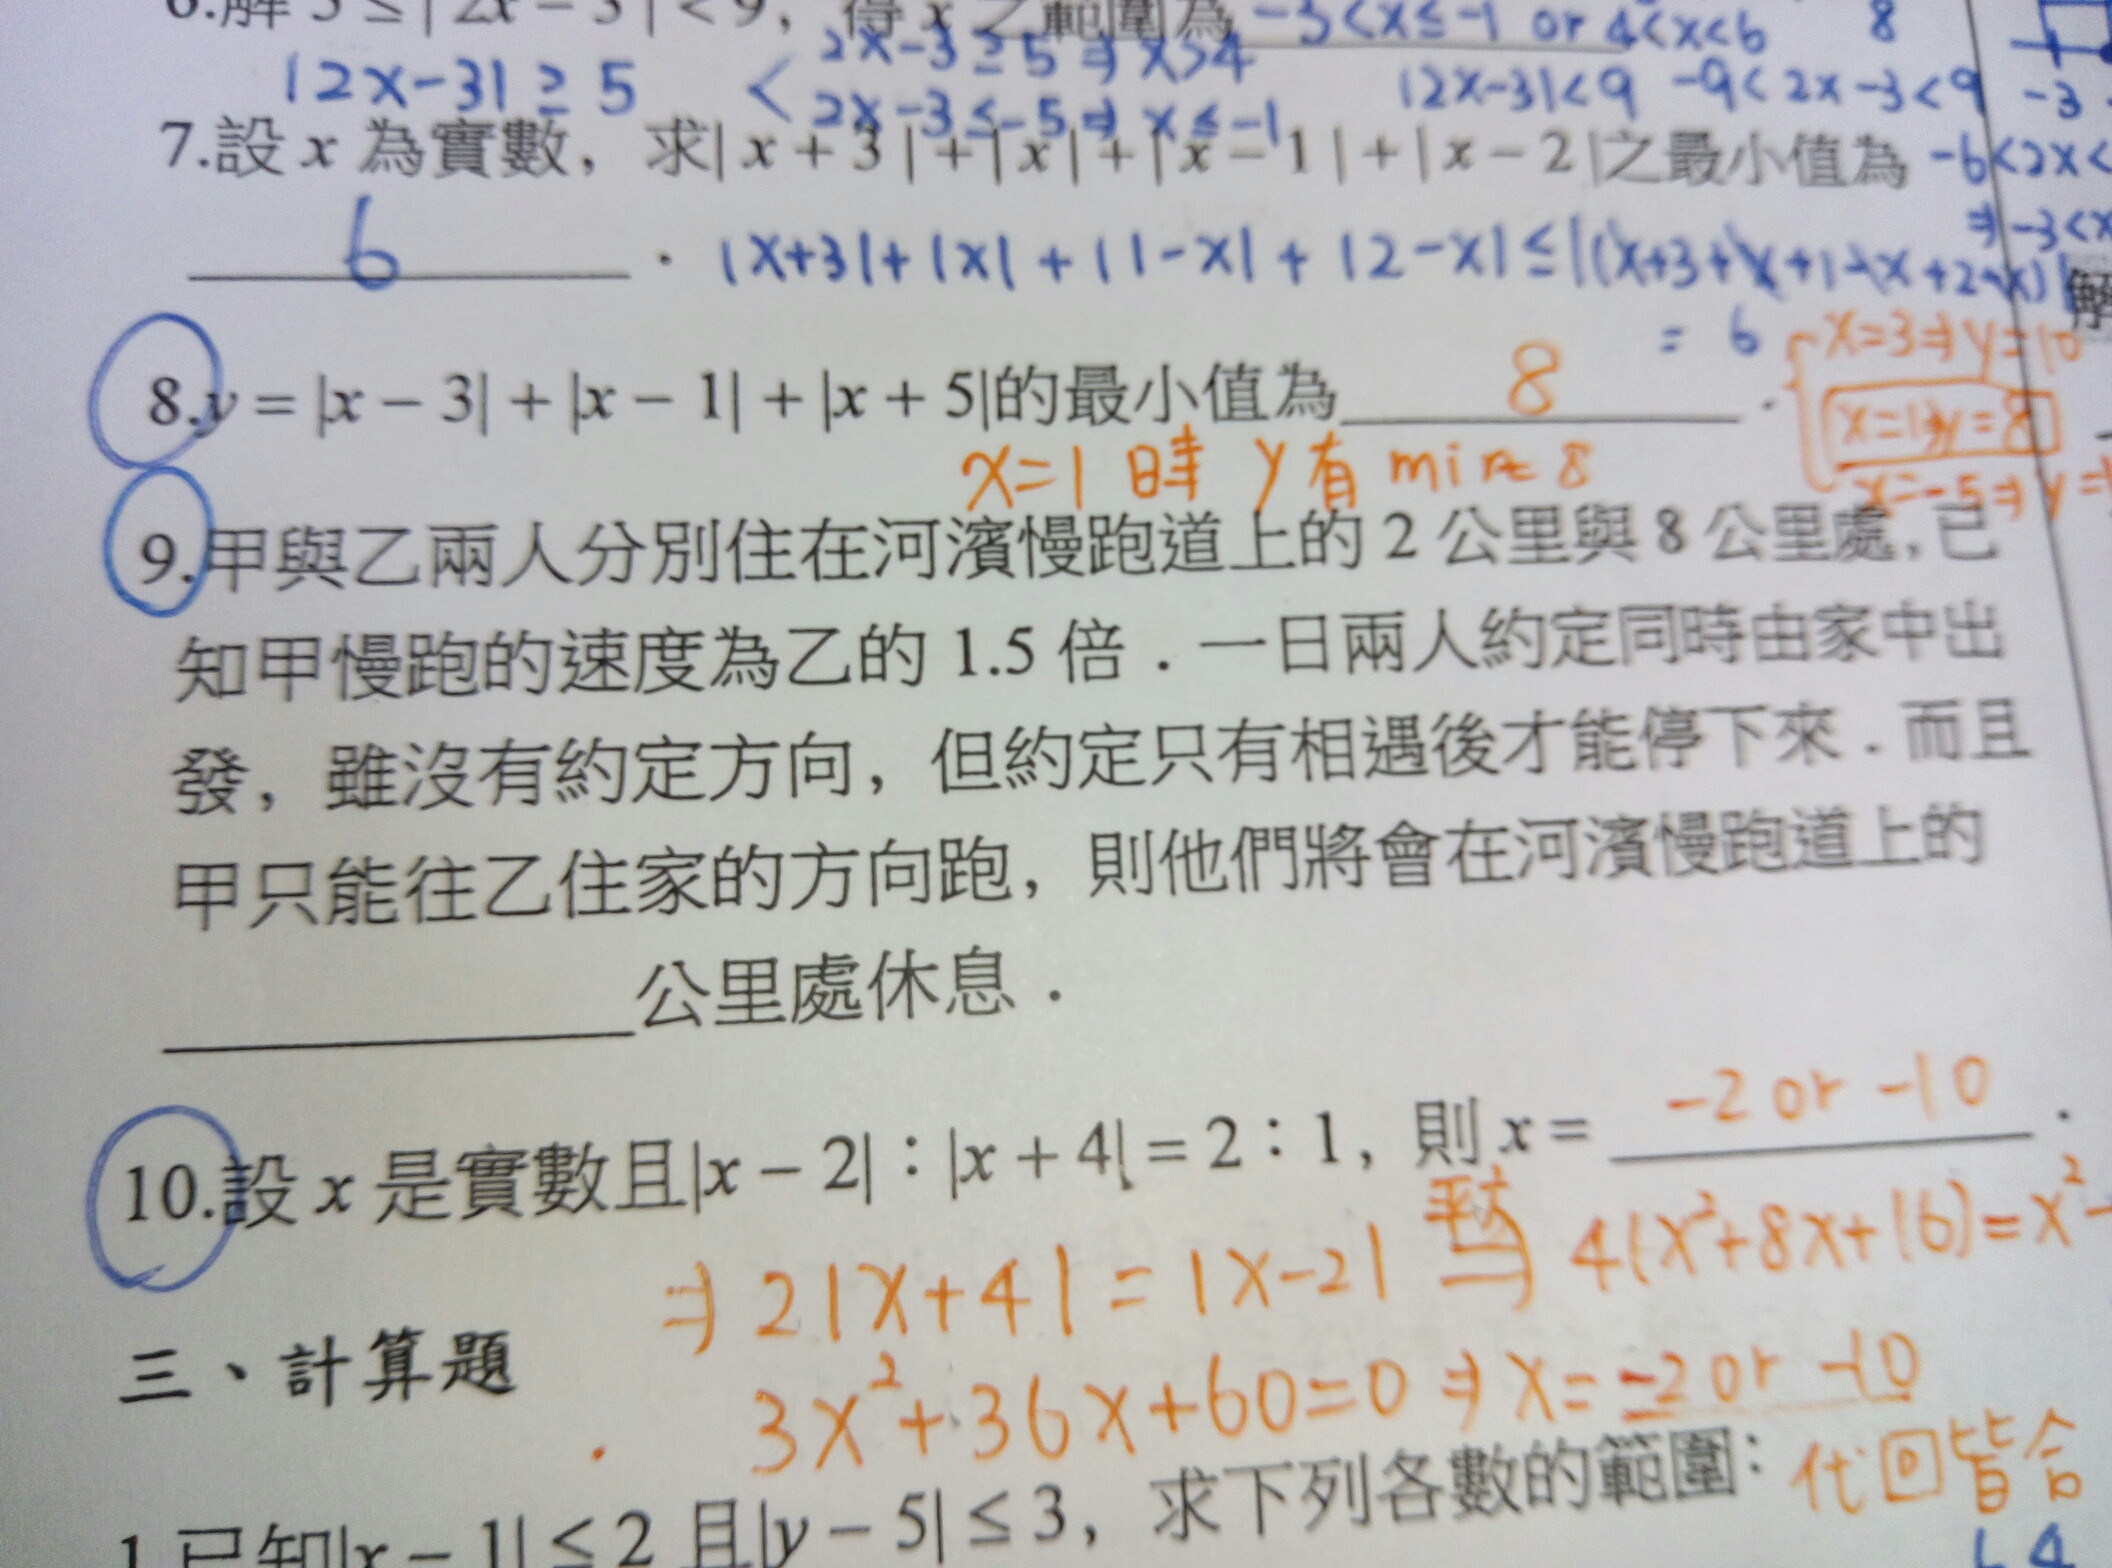 6.解 5 ≤ | 2x − 3 | < 9, 得 x 之範圍為 -3<x≤-1 or 4<x<6 8
|2x-3| ≥ 5 < 2x-3≥5 ⇒ x>4
2x-3≤-5⇒ x≤-1 |2x-3|<9 -9<2x-3<9 -3
7.設 x 為實數, 求| x + 3 | + | x | + | x − 1 | + | x − 2 |之最小值為 -6<2x<
⇒ -3<x
6 . |x+3|+|x|+|1-x|+|2-x|≤|(x+3+x+1-x+2-x)| 解
= 6
8.y = |x − 3| + |x − 1| + |x + 5|的最小值為 8 .
x=3⇒y=10
x=1⇒y=8
x=-5⇒y=
x=1 時 y有 min=8
9.甲與乙兩人分別住在河濱慢跑道上的 2 公里與 8 公里處, 已
知甲慢跑的速度為乙的 1.5 倍．一日兩人約定同時由家中出
發, 雖沒有約定方向, 但約定只有相遇後才能停下來．而且
甲只能往乙住家的方向跑, 則他們將會在河濱慢跑道上的
公里處休息．
10.設 x 是實數且|x − 2|：|x + 4| = 2：1, 則 x = -2 or -10 .
⇒ 2|x+4| = |x-2| 平方⇒ 4(x²+8x+16)=x²-
三、計算題
3x²+36x+60=0 ⇒ x=-2 or -10
代回皆合
1.已知|x − 1| ≤ 2 且|y − 5| ≤ 3, 求下列各數的範圍：